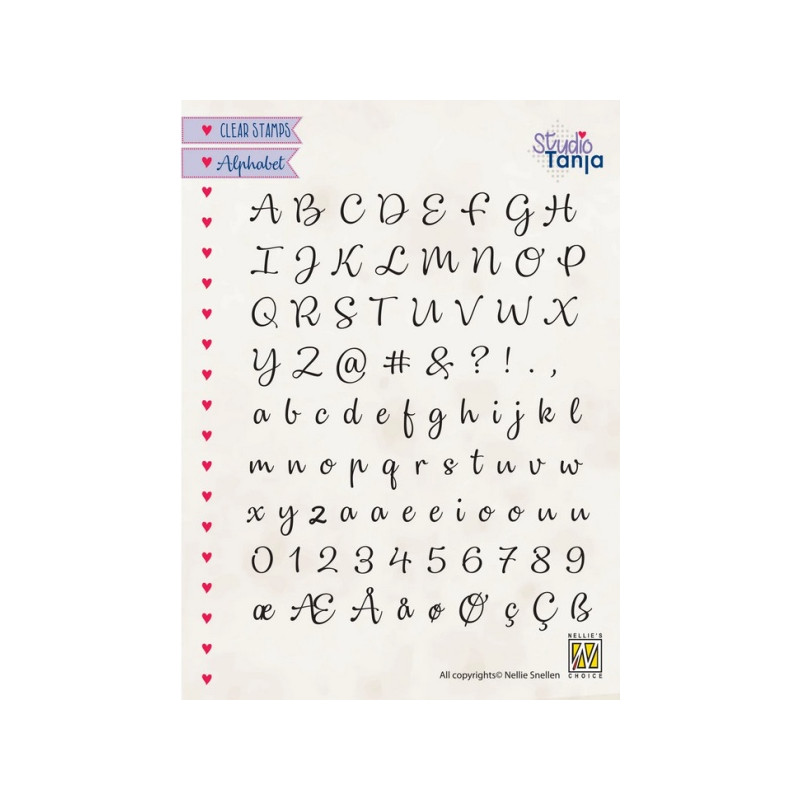 CLEAR STAMPS
Alphabet
Studio
Tanja
A B C D E F G H
I J K L M N O P
Q R S T U V W X
Y Z @ # & ? ! . ,
a b c d e f g h i j k l
m n o p q r s t u v w
x y z a a e e i o o u u
0 1 2 3 4 5 6 7 8 9
æ Æ Å å ø Ø ç Ç ß
NELLIE'S
N
CHOICE
All copyrights© Nellie Snellen